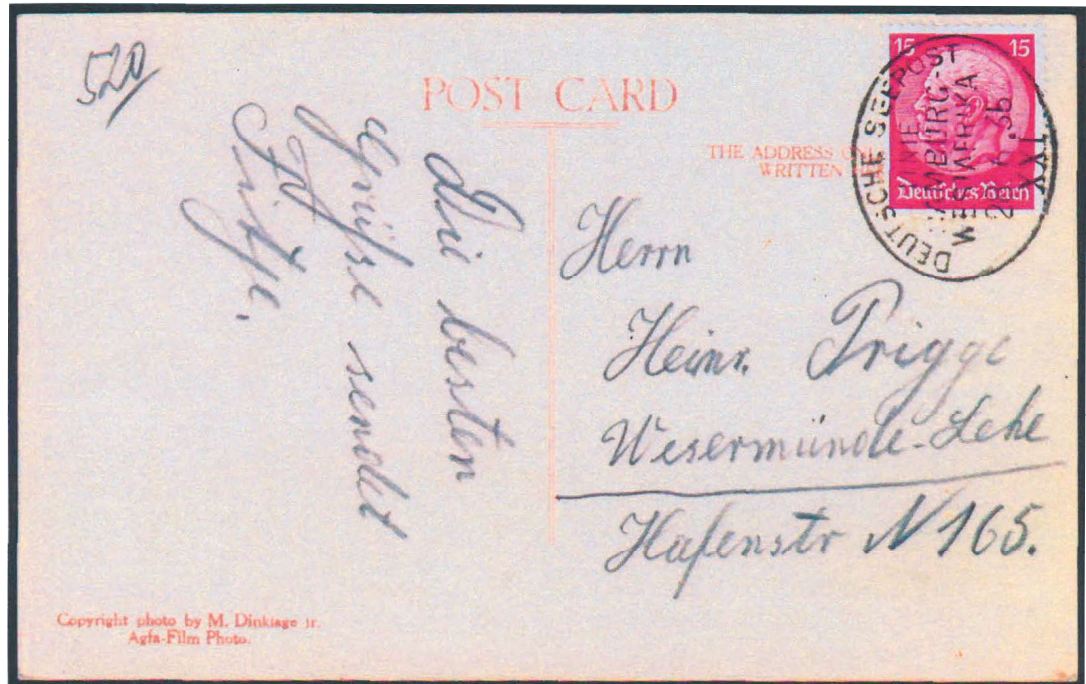 520
POST CARD
THE ADDRESS
WRITTEN
15 15
Deutsches Reich
DEUTSCHE SEEPOST
LINIE
HAMBURG-
WESTAFRIKA
XXI
Die besten
Grüße sendet
Herrn
Heinr. Prigge
Wesermünde-Lehe
Hafenstr N 165.
Copyright photo by M. Dinklage jr.
Agfa-Film Photo.